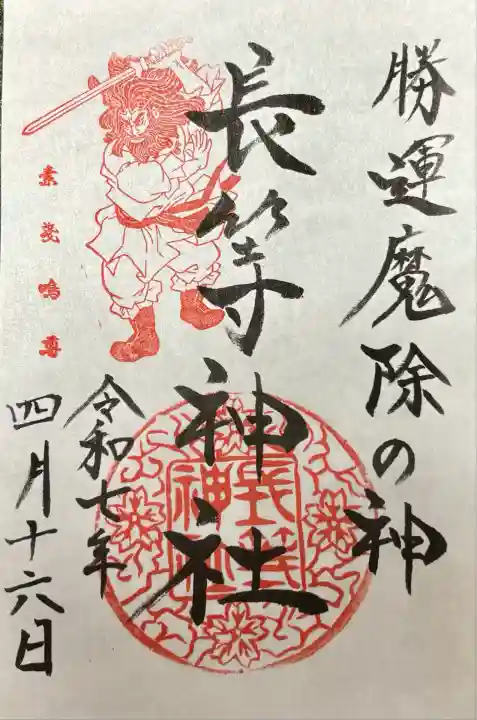 勝運魔除の神
長等神社
令和七年
四月十六日
素戔嗚尊
長等
神社